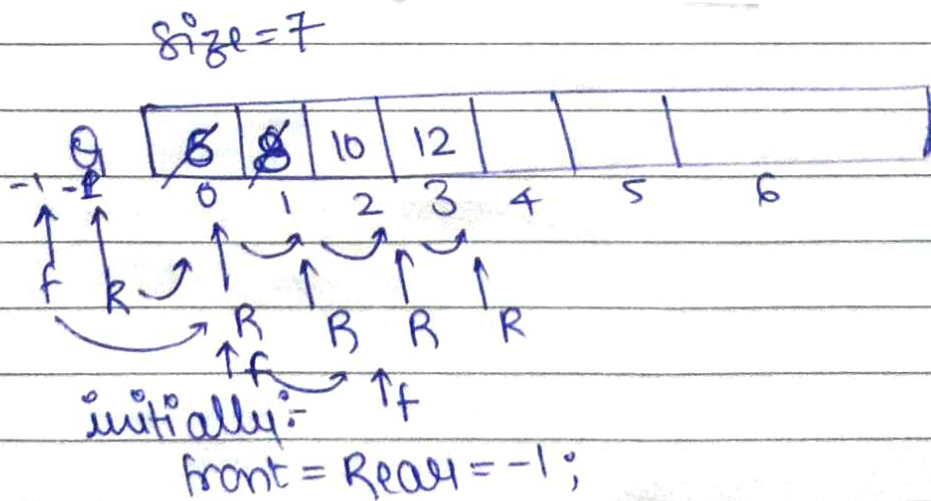 size=7
Q 6 8 10 12
-1 -1 0 1 2 3 4 5 6
f R
R R R R
f f
initially:-
front = Rear = -1;